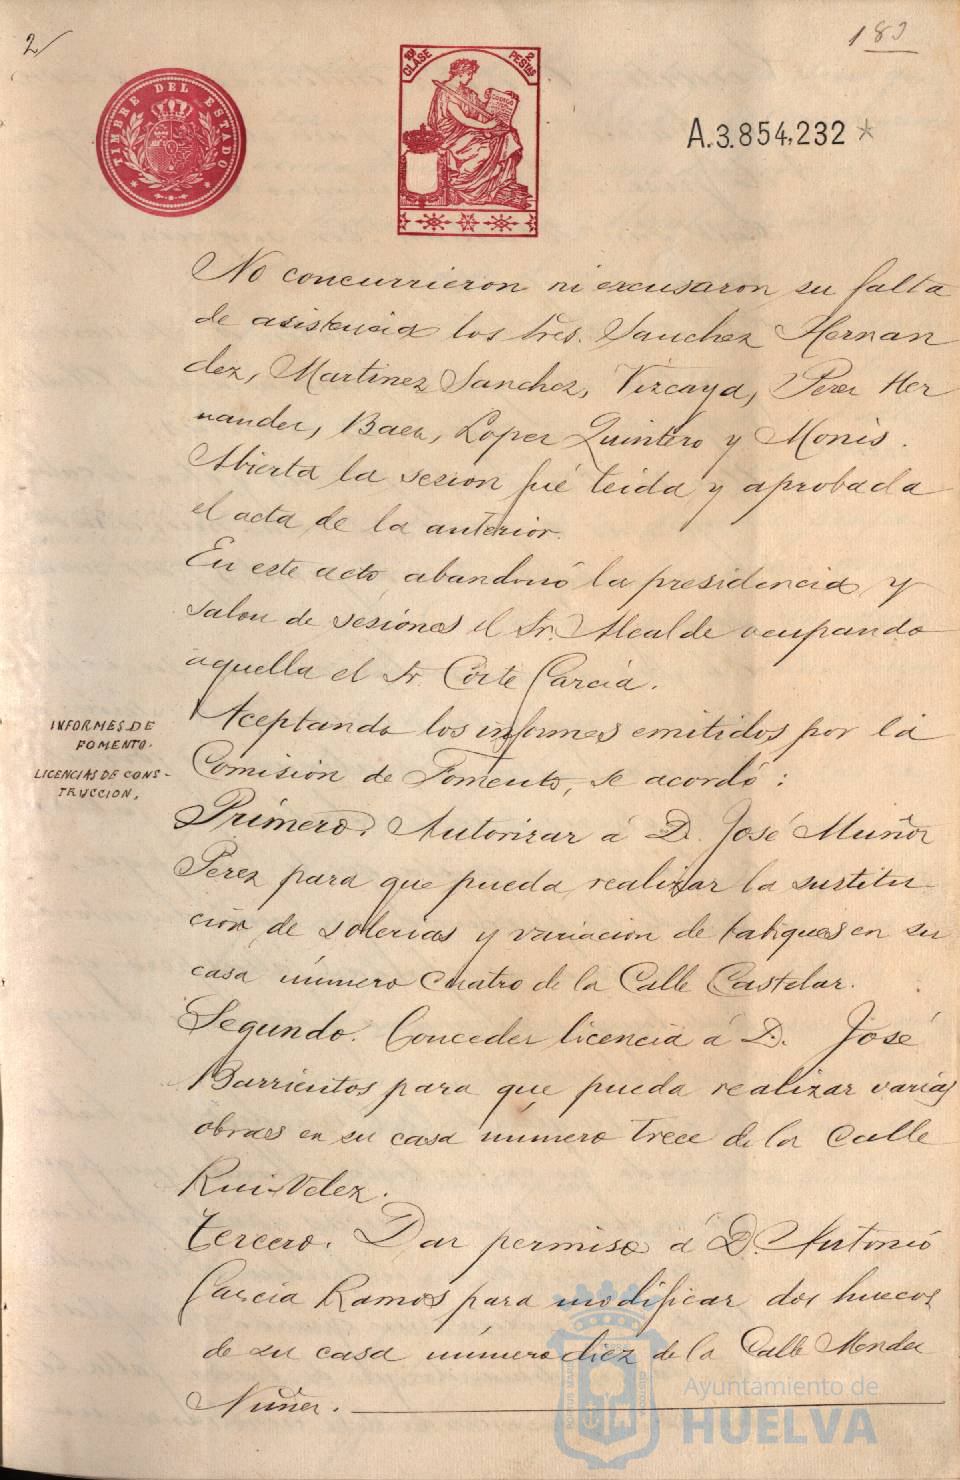 2/
183
TIMBRE DEL ESTADO
10ª CLASE
2 PESTAS
A.3.854,232 *
No concurrieron ni excusaron su falta
de asistencia los Sres. Sanchez Hernan
dez, Martinez Sanchez, Vizcaya, Perez Her
nandez, Baez, Lopez Quintero y Monis.
Abierta la sesion fué leida y aprobada
el acta de la anterior.
En este acto abandonó la presidencia y
salon de sesiones el Sr. Alcalde ocupando
aquella el Sr. Corte Garcia.
INFORMES DE
FOMENTO.
LICENCIAS DE CONS-
TRUCCION.
Aceptando los informes emitidos por la
Comisión de Fomento, se acordó:
Primero. Autorizar á D. José Muñoz
Perez para que pueda realizar la sustitu-
ción de solerias y variacion de tabiques en su
casa número cuatro de la Calle Castelar.
Segundo. Conceder licencia á D. José
Barrientos para que pueda realizar varias
obras en su casa número trece de la Calle
Rui-Velez.
Tercero. Dar permiso á D. Antonio
Garcia Ramos para modificar dos huecos
de su casa número diez de la Calle Mendez
Nuñez.
Ayuntamiento de
HUELVA